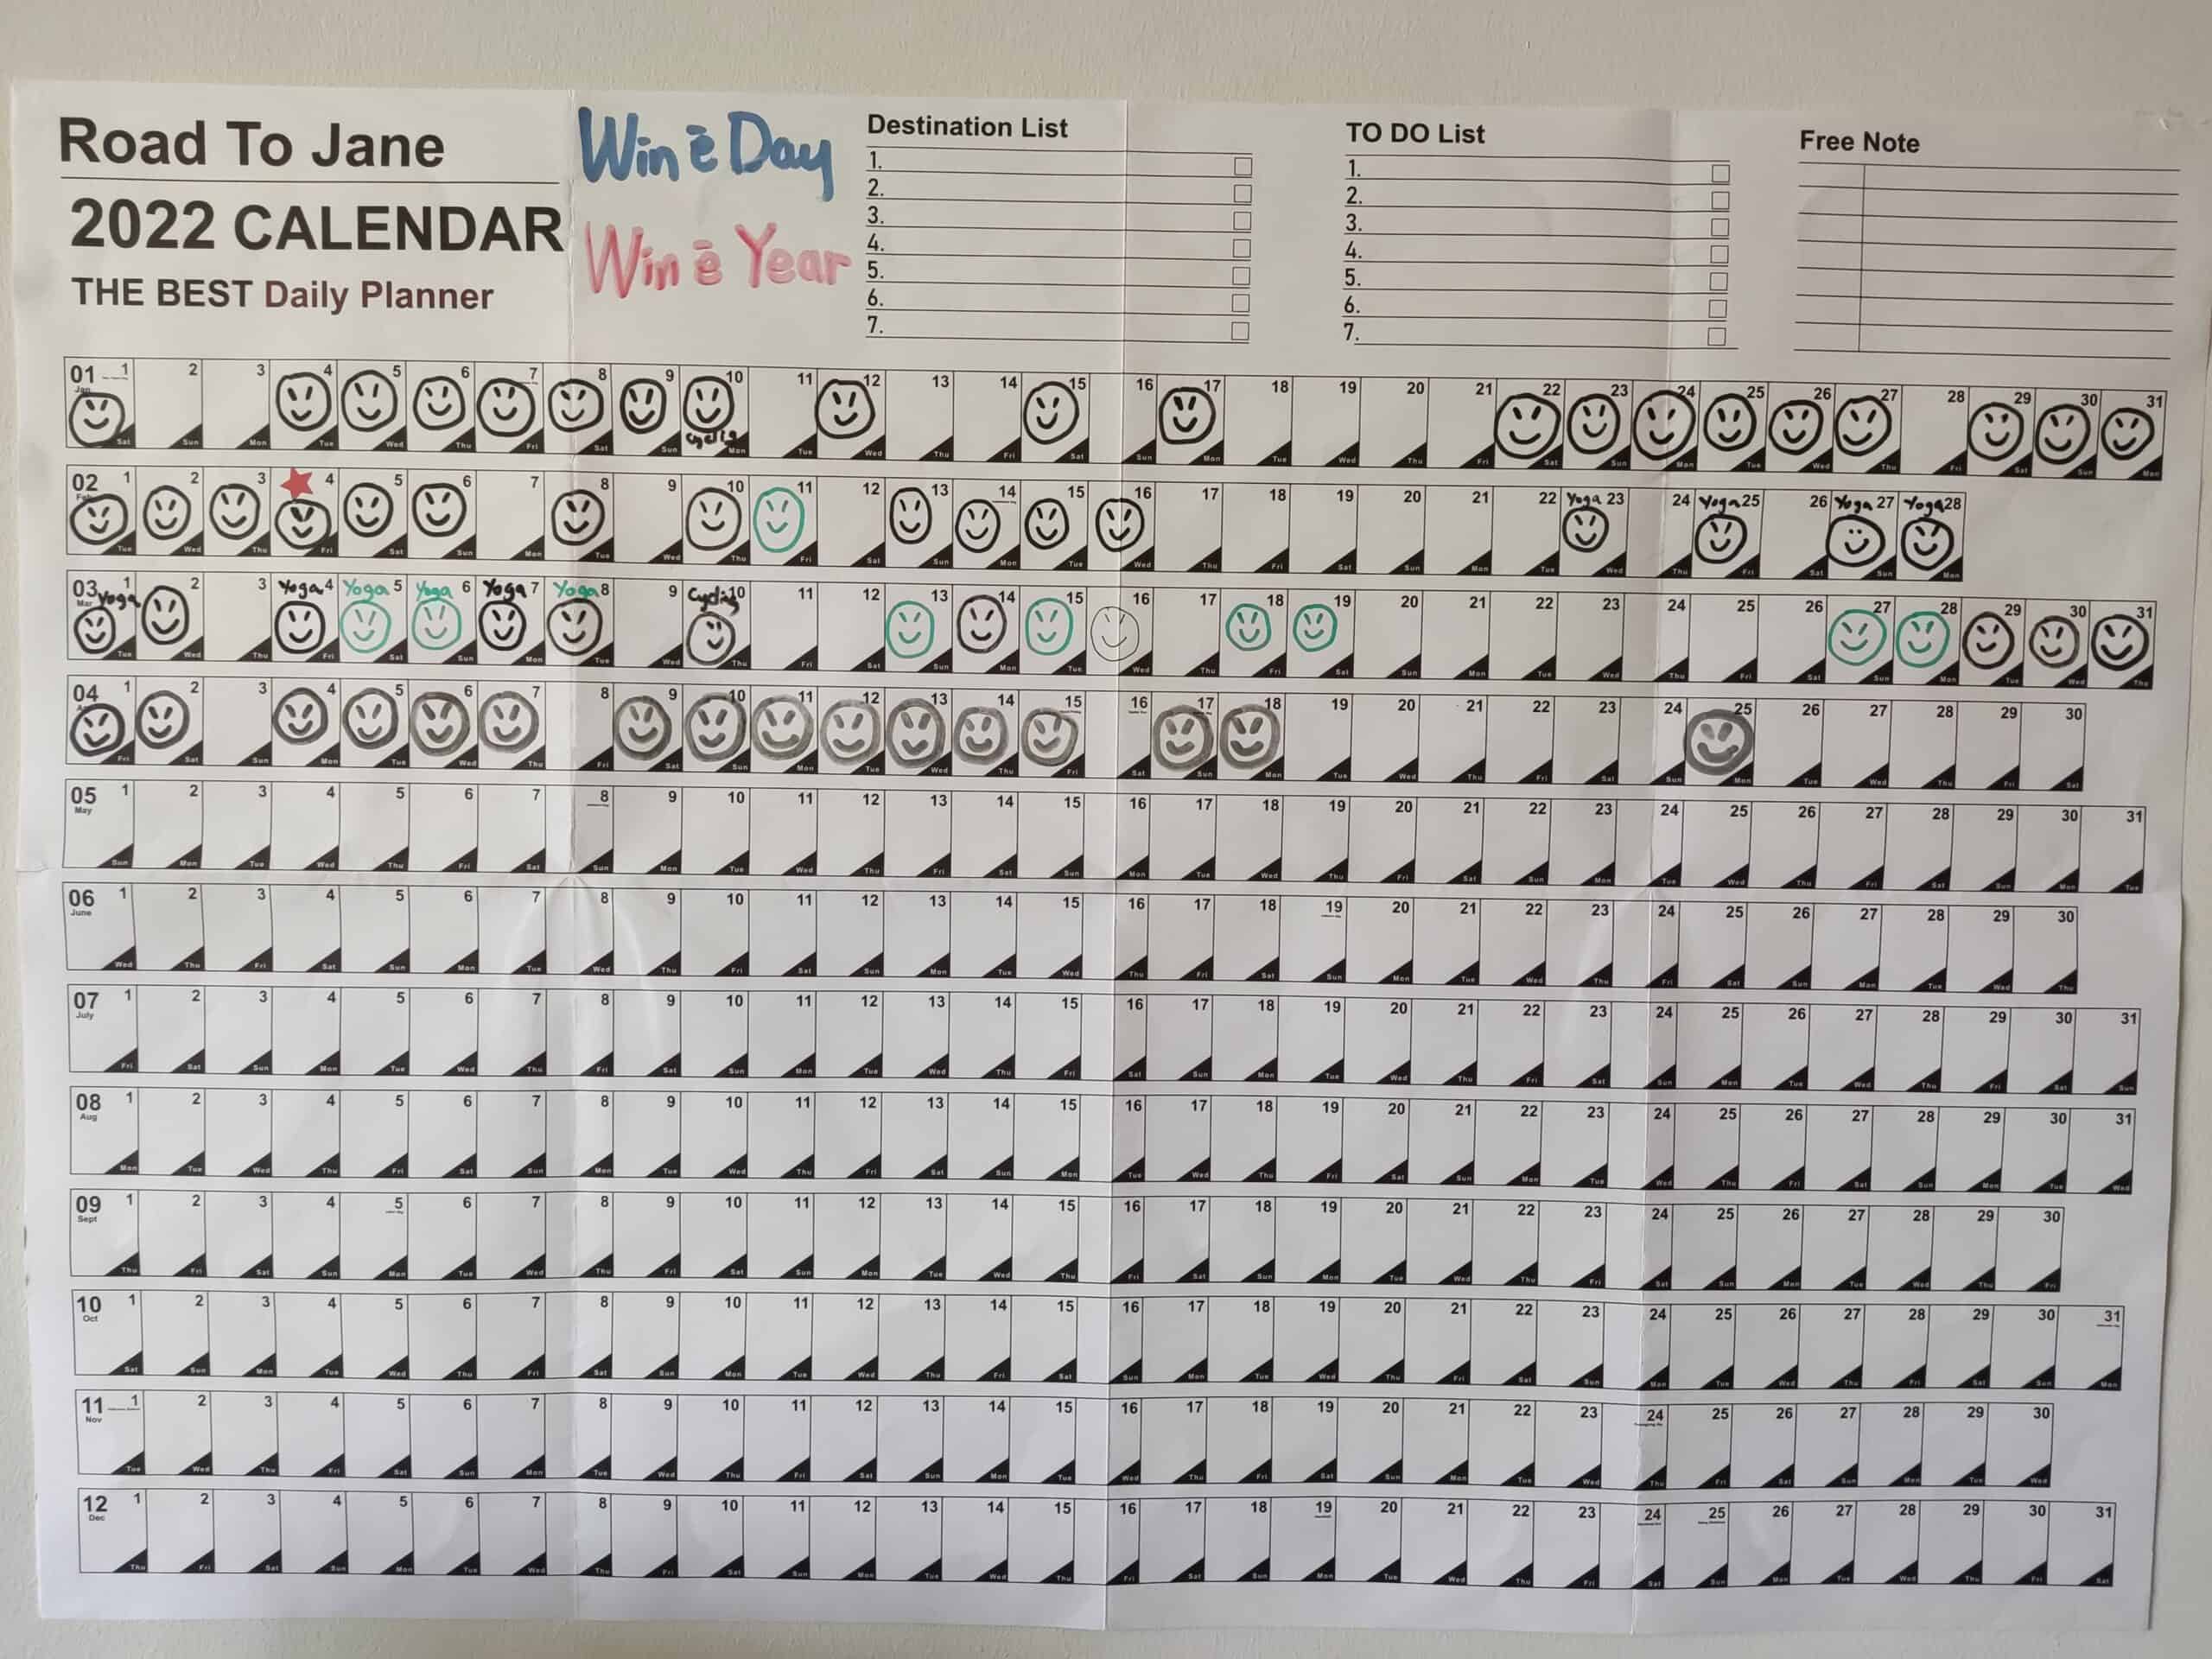 Road To Jane
2022 CALENDAR
THE BEST Daily Planner
Win ē Day
Win ē Year
Destination List
1.
2.
3.
4.
5.
6.
7.
TO DO List
1.
2.
3.
4.
5.
6.
7.
Free Note
01 1 2 3 4 5 6 7 8 9 10 11 12 13 14 15 16 17 18 19 20 21 22 23 24 25 26 27 28 29 30 31
Jan
Cyclig
Sat Sun Mon Tue Wed Thu Fri Sat Sun Mon Tue Wed Thu Fri Sat Sun Mon Tue Wed Thu Fri Sat Sun Mon Tue Wed Thu Fri Sat Sun Mon
02 1 2 3 4 5 6 7 8 9 10 11 12 13 14 15 16 17 18 19 20 21 22 Yoga 23 24 Yoga 25 26 Yoga 27 Yoga 28
Tue Wed Thu Fri Sat Sun Mon Tue Wed Thu Fri Sat Sun Mon Tue Wed Thu Fri Sat Sun Mon Tue Wed Thu Fri Sat Sun Mon
03 1 Yoga 2 3 Yoga 4 Yoga 5 Yoga 6 Yoga 7 Yoga 8 9 Cycling 10 11 12 13 14 15 16 17 18 19 20 21 22 23 24 25 26 27 28 29 30 31
Mar
Tue Wed Thu Fri Sat Sun Mon Tue Wed Thu Fri Sat Sun Mon Tue Wed Thu Fri Sat Sun Mon Tue Wed Thu Fri Sat Sun Mon Tue Wed Thu
04 1 2 3 4 5 6 7 8 9 10 11 12 13 14 15 16 17 18 19 20 21 22 23 24 25 26 27 28 29 30
Fri Sat Sun Mon Tue Wed Thu Fri Sat Sun Mon Tue Wed Thu Fri Sat Sun Mon Tue Wed Thu Fri Sat Sun Mon Tue Wed Thu Fri Sat
05 1 2 3 4 5 6 7 8 9 10 11 12 13 14 15 16 17 18 19 20 21 22 23 24 25 26 27 28 29 30 31
May
Sun Mon Tue Wed Thu Fri Sat Sun Mon Tue Wed Thu Fri Sat Sun Mon Tue Wed Thu Fri Sat Sun Mon Tue Wed Thu Fri Sat Sun Mon Tue
06 1 2 3 4 5 6 7 8 9 10 11 12 13 14 15 16 17 18 19 20 21 22 23 24 25 26 27 28 29 30
June
Wed Thu Fri Sat Sun Mon Tue Wed Thu Fri Sat Sun Mon Tue Wed Thu Fri Sat Sun Mon Tue Wed Thu Fri Sat Sun Mon Tue Wed Thu
07 1 2 3 4 5 6 7 8 9 10 11 12 13 14 15 16 17 18 19 20 21 22 23 24 25 26 27 28 29 30 31
July
Fri Sat Sun Mon Tue Wed Thu Fri Sat Sun Mon Tue Wed Thu Fri Sat Sun Mon Tue Wed Thu Fri Sat Sun Mon Tue Wed Thu Fri Sat Sun
08 1 2 3 4 5 6 7 8 9 10 11 12 13 14 15 16 17 18 19 20 21 22 23 24 25 26 27 28 29 30 31
Aug
Mon Tue Wed Thu Fri Sat Sun Mon Tue Wed Thu Fri Sat Sun Mon Tue Wed Thu Fri Sat Sun Mon Tue Wed Thu Fri Sat Sun Mon Tue Wed
09 1 2 3 4 5 6 7 8 9 10 11 12 13 14 15 16 17 18 19 20 21 22 23 24 25 26 27 28 29 30
Sept
Thu Fri Sat Sun Mon Tue Wed Thu Fri Sat Sun Mon Tue Wed Thu Fri Sat Sun Mon Tue Wed Thu Fri Sat Sun Mon Tue Wed Thu Fri
10 1 2 3 4 5 6 7 8 9 10 11 12 13 14 15 16 17 18 19 20 21 22 23 24 25 26 27 28 29 30 31
Oct
Sat Sun Mon Tue Wed Thu Fri Sat Sun Mon Tue Wed Thu Fri Sat Sun Mon Tue Wed Thu Fri Sat Sun Mon Tue Wed Thu Fri Sat Sun Mon
11 1 2 3 4 5 6 7 8 9 10 11 12 13 14 15 16 17 18 19 20 21 22 23 24 25 26 27 28 29 30
Nov
Tue Wed Thu Fri Sat Sun Mon Tue Wed Thu Fri Sat Sun Mon Tue Wed Thu Fri Sat Sun Mon Tue Wed Thu Fri Sat Sun Mon Tue Wed
12 1 2 3 4 5 6 7 8 9 10 11 12 13 14 15 16 17 18 19 20 21 22 23 24 25 26 27 28 29 30 31
Dec
Thu Fri Sat Sun Mon Tue Wed Thu Fri Sat Sun Mon Tue Wed Thu Fri Sat Sun Mon Tue Wed Thu Fri Sat Sun Mon Tue Wed Thu Fri Sat